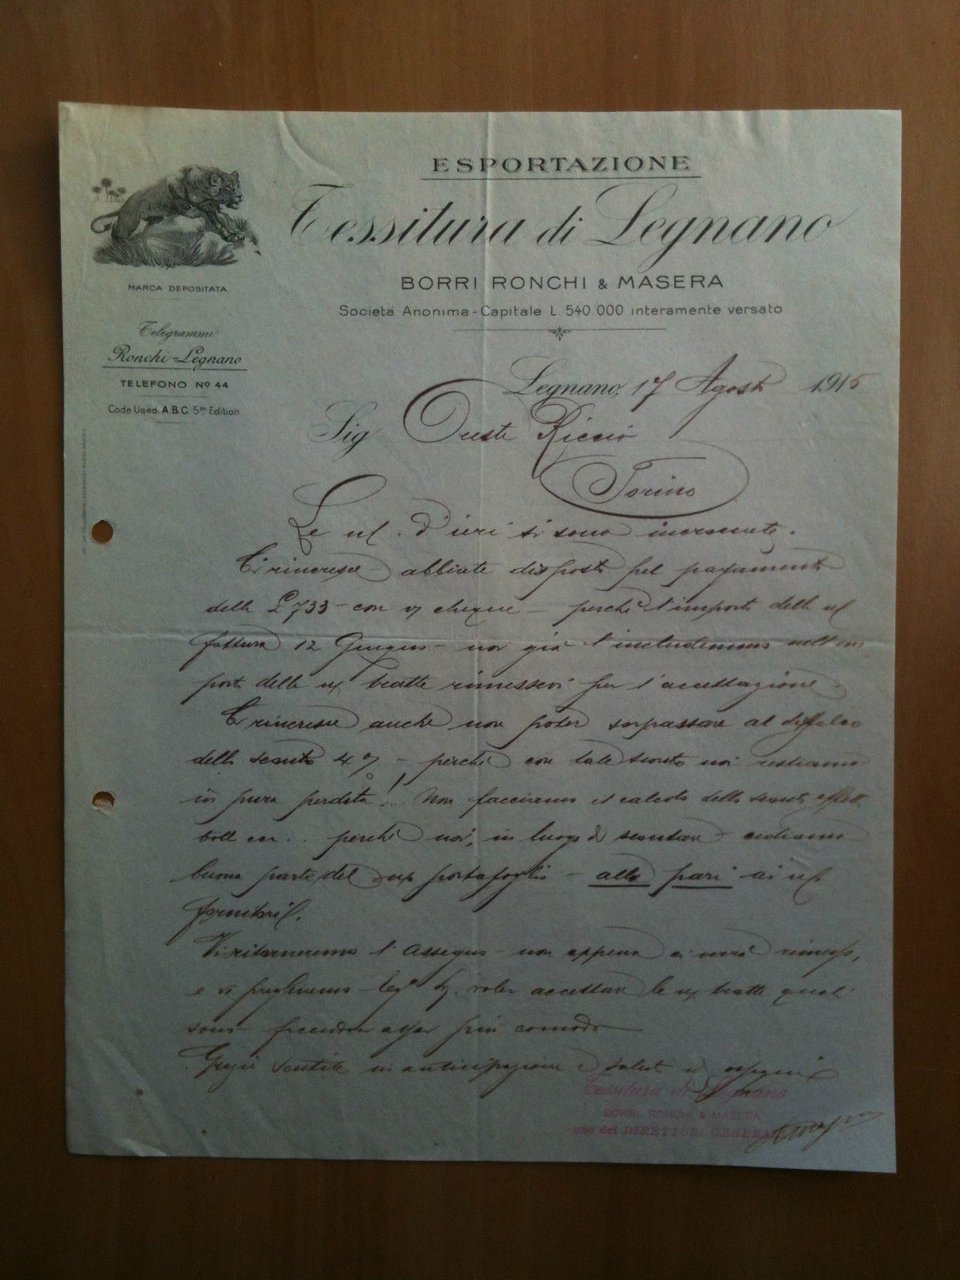 ESPORTAZIONE
Tessitura di Legnano
BORRI RONCHI & MASERA
Società Anonima - Capitale L. 540.000 interamente versato
MARCA DEPOSITATA
Telegrammi
Ronchi-Legnano
TELEFONO No 44
Code Used A.B.C. 5th Edition
Legnano, 17 Agosto 1915
Sig Oreste Riccio
Torino
Le d'ieri si sono incrociate.
Ci rincresce abbiate disposto pel pagamento
delle £ 733 - con chèque - perchè l'importo della
fattura 12 Giugno - noi già l'includemmo
delle tratte rimessevi per l'accettazione.
Ci rincresce anche non poter sorpassare al
dello sconto 4% - perchè con tale sconto noi restiamo
in pura perdita! Non facciamo il calcolo dello sconto
boll perchè noi, in luogo di scontare - cediamo
buona parte del portafoglio - alla pari - ai
fornitori.
Vi ritorneremo l'Assegno - non appena ci verrà rimesso,
e vi preghiamo voler accettare le tratte
sono assai più comode
Grazie sentite in anticipazione e saluti
Tessitura di Legnano
BORRI, RONCHI & MASERA
uno dei DIRETTORI GENERALI